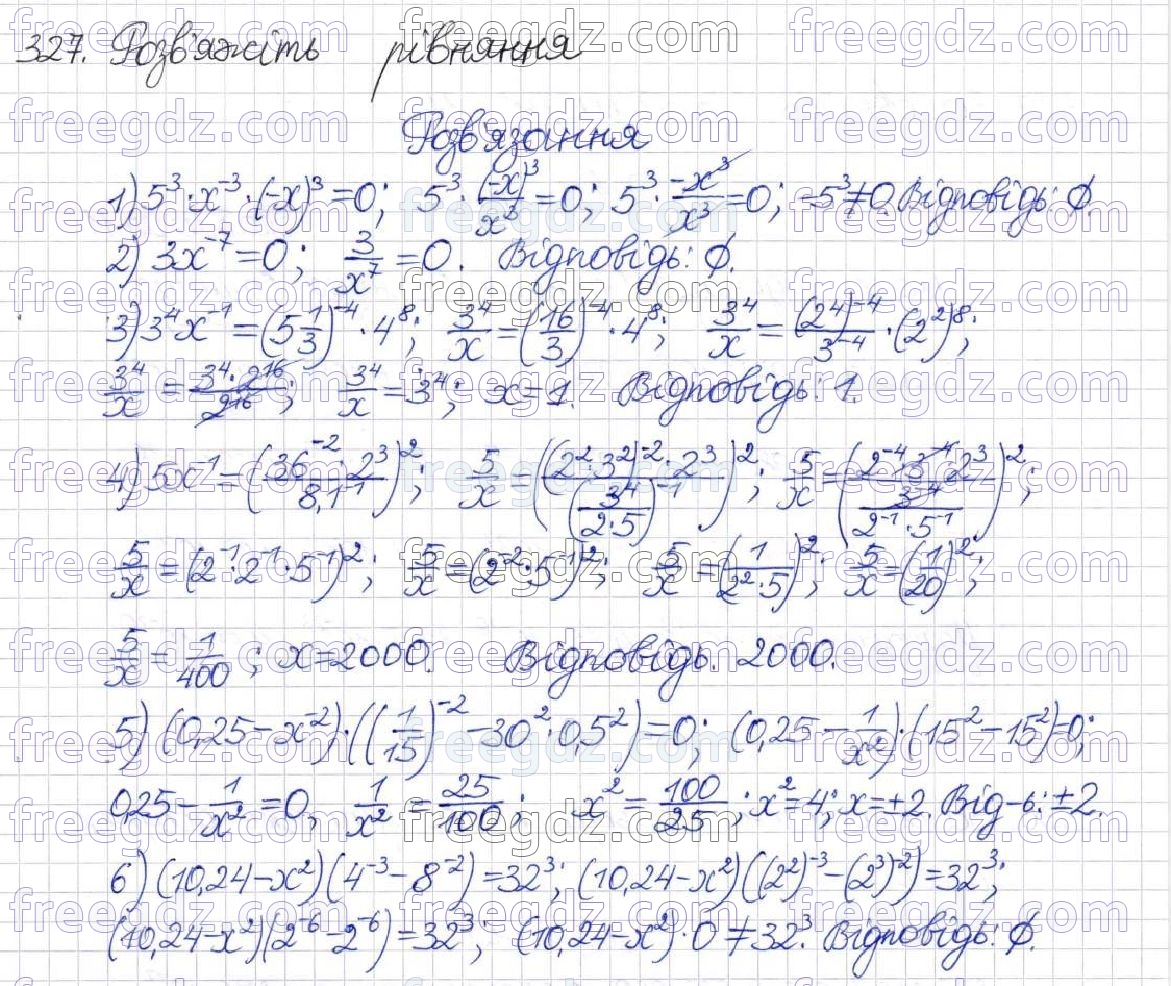 327. Розв'яжіть рівняння
Розв'язання
1) 5³·x⁻³·(-x)³=0; 5³·(-x)³/x³=0; 5³·-x³/x³=0; -5³≠0. Відповідь: ∅.
2) 3x⁻⁷=0; 3/x⁷=0. Відповідь: ∅.
3) 3⁴x⁻¹=(5 1/3)⁻⁴·4⁸; 3⁴/x=(16/3)⁻⁴·4⁸; 3⁴/x=(2⁴)⁻⁴/3⁻⁴·(2²)⁸;
3⁴/x=3⁴·2¹⁶/2¹⁶; 3⁴/x=3⁴; x=1. Відповідь: 1.
4) 5x⁻¹=(36⁻²·2³/8,1⁻¹)²; 5/x=((2²·3²)⁻²·2³/(3⁴/2·5)⁻¹)²; 5/x=(2⁻⁴·3⁻⁴·2³/(3⁻⁴/2⁻¹·5⁻¹))²;
5/x=(2⁻¹·2⁻¹·5⁻¹)²; 5/x=(2⁻²·5⁻¹)²; 5/x=(1/2²·5)²; 5/x=(1/20)²;
5/x=1/400; x=2000. Відповідь. 2000.
5) (0,25-x⁻²)·((1/15)⁻²-30²·0,5²)=0; (0,25-1/x²)·(15²-15²)=0;
0,25-1/x²=0, 1/x²=25/100; x²=100/25; x²=4; x=±2. Від-ь: ±2.
6) (10,24-x²)(4⁻³-8⁻²)=32³; (10,24-x²)((2²)⁻³-(2³)⁻²)=32³;
(10,24-x²)(2⁻⁶-2⁻⁶)=32³; (10,24-x²)·0≠32³. Відповідь: ∅.
freegdz.com